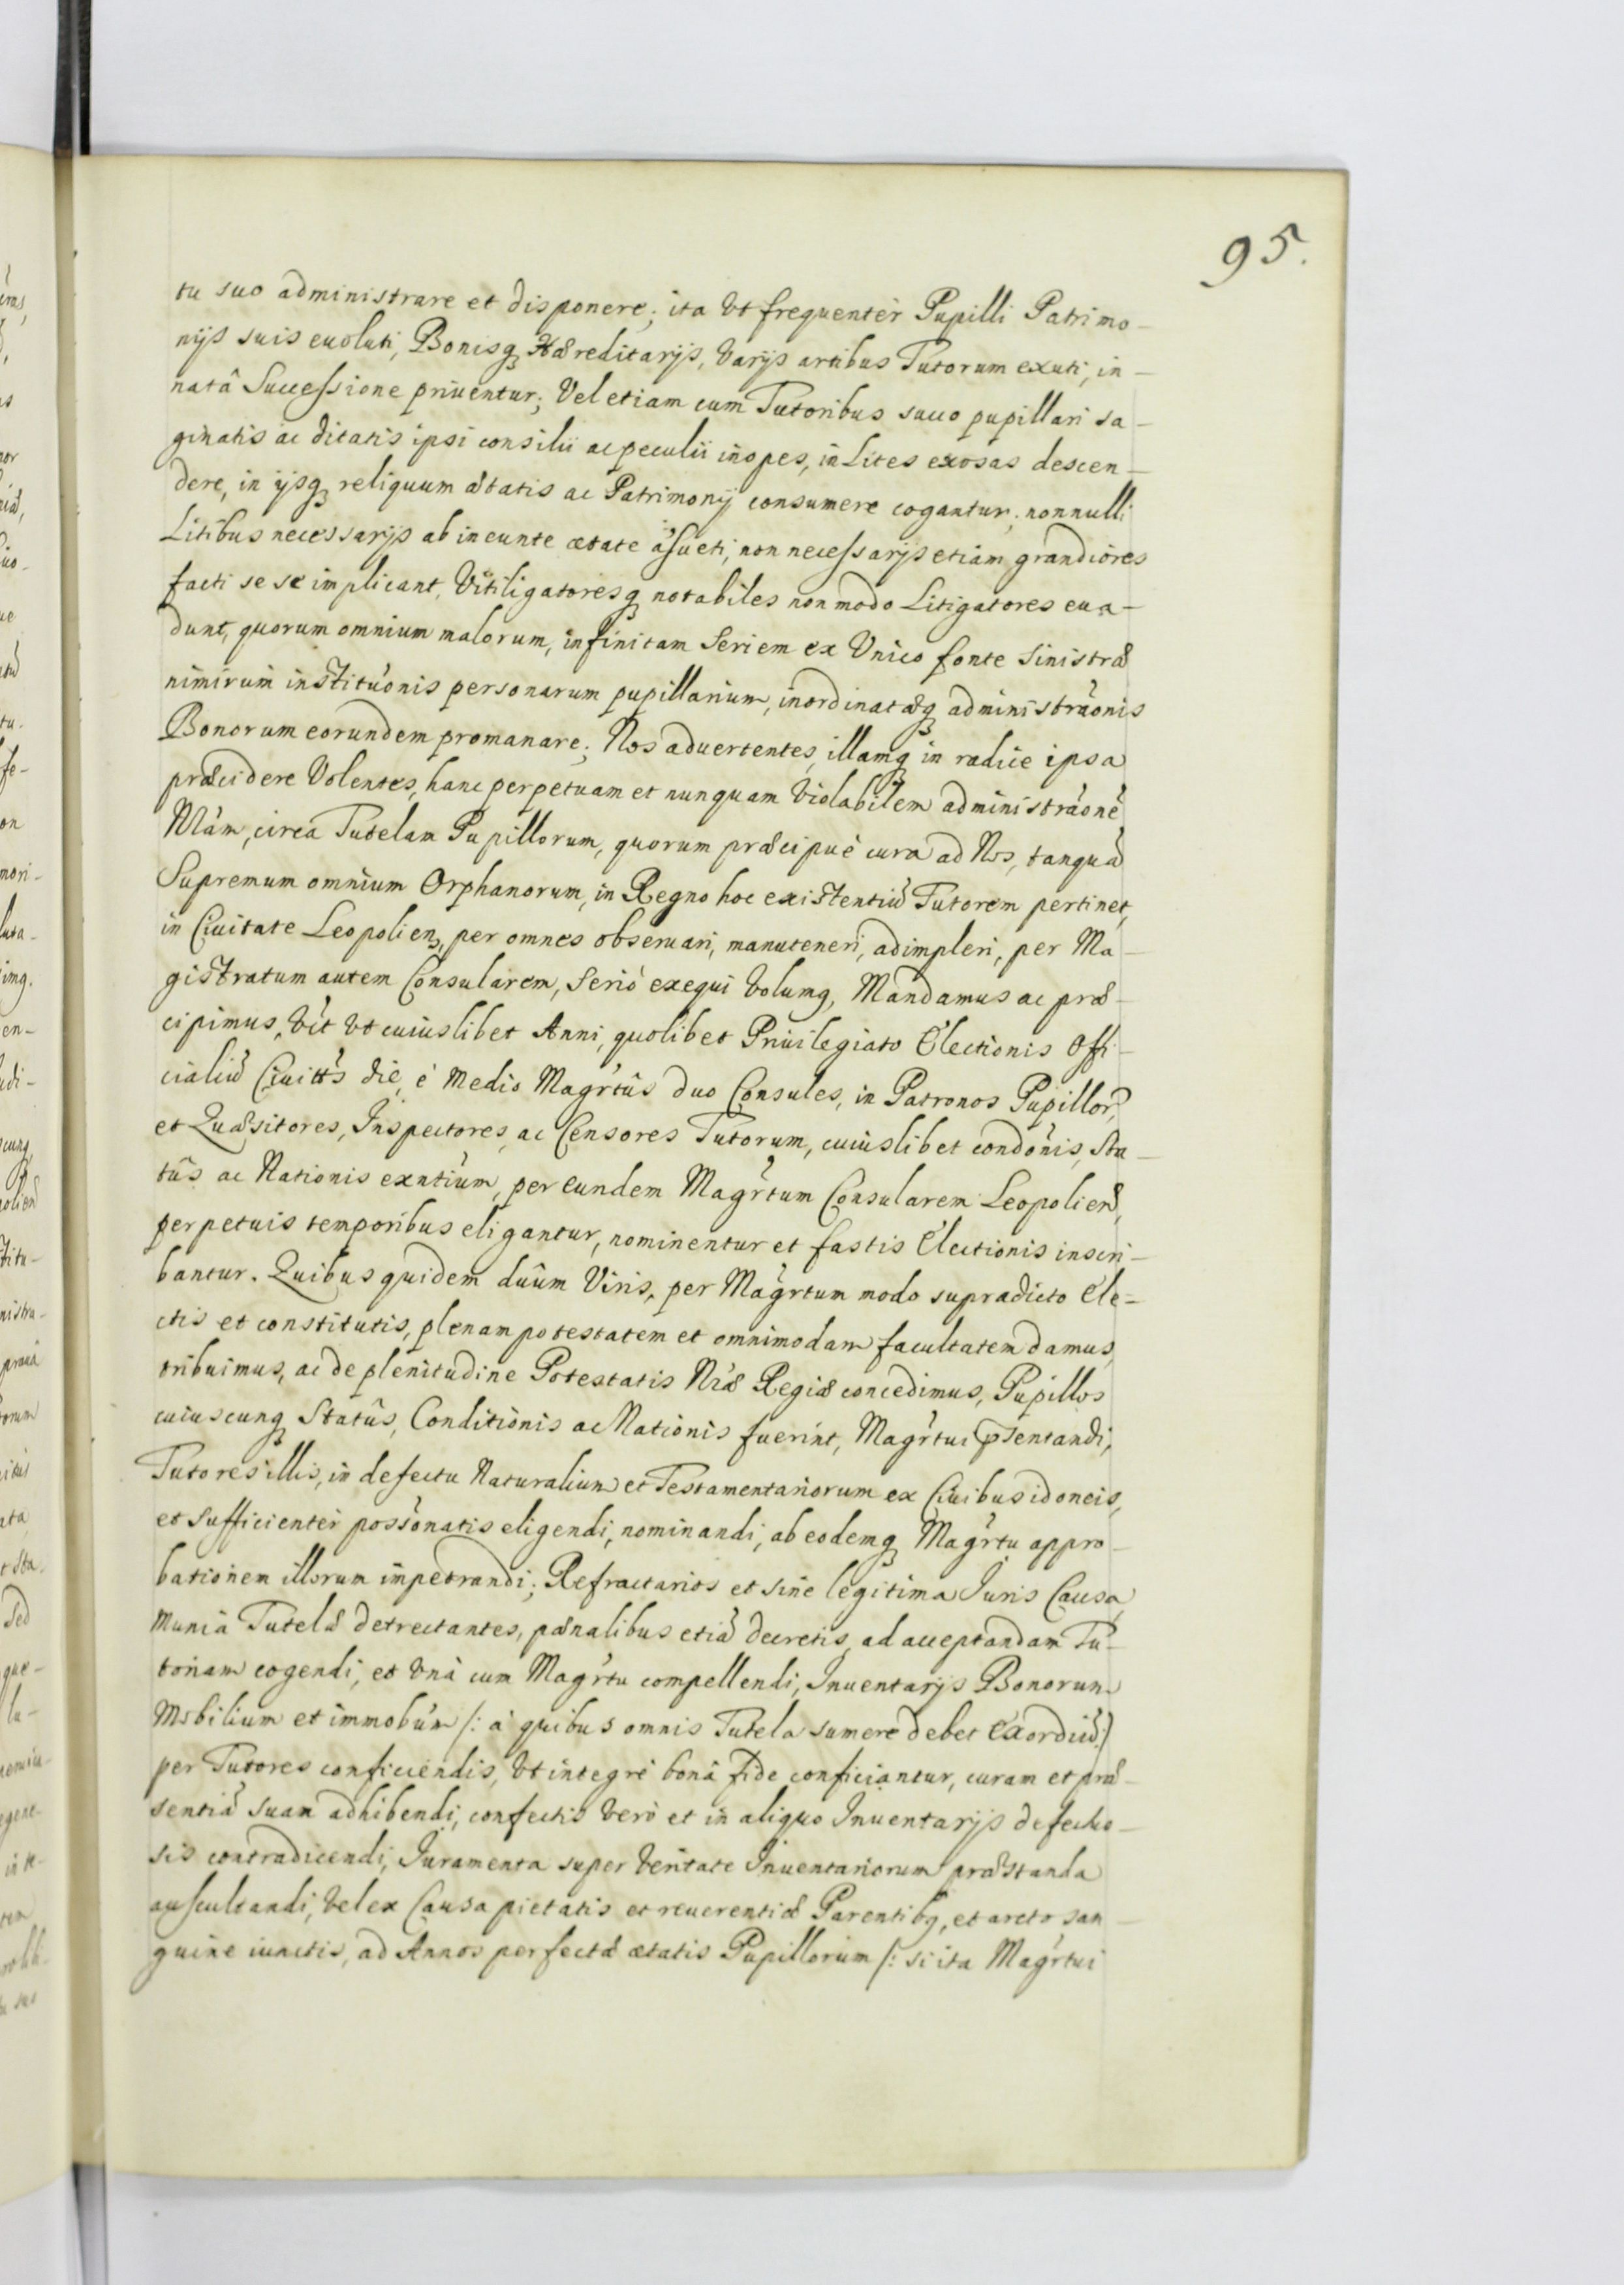 95.
tu suo administrare et disponere; ita Vt frequentèr Pupilli Patrimo-
nijs suis euoluti, Bonisq Hæreditarijs, Varijs artibus Tutorum exuti, in-
natâ Successione priuentur; Vel etiam cum Tutoribus succo pupillari sa-
ginatis ac ditatis ipsi consilii ac peculii inopes, in Lites exosas descen-
dere, in ijsq reliquum ætatis ac Patrimonij consumere cogantur; nonnulli
Litibus necessarijs ab ineunte ætate assueti, non necessarijs etiam grandiores
facti se se implicant, Vitiligatoresq notabiles non modo Litigatores eua-
dunt, quorum omnium malorum, infinitam Seriem ex Vnico fonte Sinistræ
nimirum institũonis personarum pupillarium, inordinatæq administrãonis
Bonorum eorundem promanare; Nos aduertentes, illamq in radice ipsa
præcidere Volentes, hanc perpetuam et nunquam Violabilem administrãonẽ
Nr̃am, circa Tutelam Pupillorum, quorum præcipuè cura ad Nos, tanquã
Supremum omnium Orphanorum, in Regno hoc existentiũ Tutorem pertinet,
in Ciuitate Leopolien, per omnes obseruari, manuteneri, adimpleri, per Ma-
gistratum autem Consularem, Seriò exequi Volumq, Mandamus ac præ-
cipimus, Vi͂t Vt cuiuslibet Anni, quolibet Priuilegiato Electionis Offi-
cialiũ Ciuittis die, è Medio Magr̃tûs duo Consules, in Patronos Pupillor,
et Quæsitores, Inspectores, ac Censores Tutorum, cuiuslibet condõnis, Sta-
tûs ac Nationis exñtium, per eundem Magr̃tum Consularem Leopolien,
perpetuis temporibus eligantur, nominentur et fastis Electionis inscri-
bantur. Quibus quidem duûm Viris, per Magr̃tum modo supradicto Ele-
ctis et constitutis, plenam potestatem et omnimodam facultatem damus,
tribuimus, ac de plenitudine Potestatis Nr̃æ Regiæ concedimus, Pupillos
cuiuscunq Statûs, Conditionis ac Nationis fuerint, Magr̃tui p̃sentandi,
Tutores illis, in defectu Naturalium et Testamentariorum ex Ciuibus idoneis,
et Sufficientèr possõnatis eligendi, nominandi, ab eodemq Magr̃tu appro-
bationem illorum impetrandi; Refractarios et sine legitima Juris Causa,
Munia Tutelæ detrectantes, pænalibus etiã decretis, ad acceptandam Tu-
toriam cogendi, et Vnà cum Magr̃tu compellendi, Inuentarijs Bonorum
Mobilium et immobũm /: à quibus omnis Tutela sumere debet Exordiũ:/
per Tutores conficiendis, Vt integrè bonâ fide conficiantur, curam et præ-
sentiã suam adhibendi, confectis Verò et in aliquo Inuentarijs defectuo-
sis contradicendi, Juramenta super Veritate Inuentariorum præstanda
auscultandi, Vel ex Causa pietatis et reuerentiæ Parentibq, et arcto san-
guine iunctis, ad Annos perfectæ ætatis Pupillorum /: si ita Magr̃tui